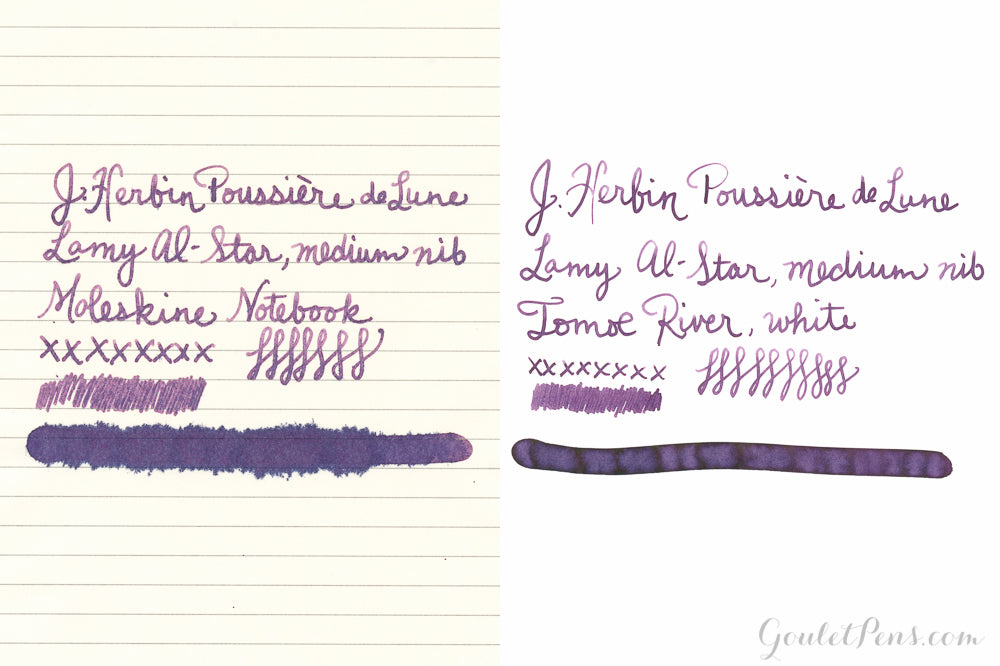 J. Herbin Poussière de Lune
Lamy Al-Star, medium nib
Moleskine Notebook
xxxxxxxx
J. Herbin Poussière de Lune
Lamy Al-Star, medium nib
Tomoe River, white
xxxxxxxx
GouletPens.com